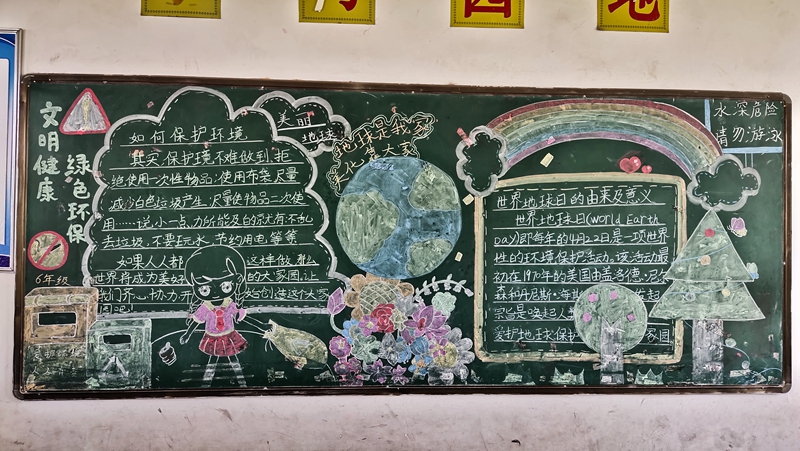 园地
文明健康
绿色环保
6年级
如何保护环境
其实,保护环境不难做到,拒
绝使用一次性物品,使用布袋,尽量
减少白色垃圾产生,尽量使物品二次使
用……说小一点,力所能及的就有:不乱
去垃圾,不要玩水,节约用电,等等
如果人人都 这样做,那么
世界将成为美好 的大家园,让
我们齐心协力,开 始创造这个大家
园吧!
美丽
地球
地球是我家
爱护靠大家
世界地球日的由来及意义
世界地球日(World Earth
Day)即每年的4月22日是一项世界
性的环境保护活动。该活动最
初在1970年的美国由盖洛德·尼尔
森和丹尼斯·海 起
宗旨是唤起人
爱护地球保护 家园
水深危险
请勿游泳